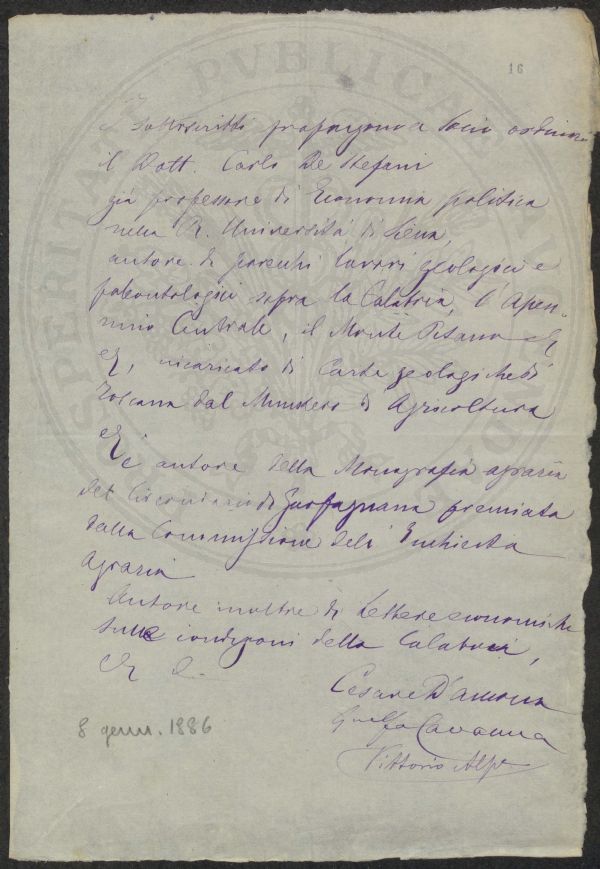 16
I sottoscritti propongono a Socio ordinario
il Dott. Carlo De Stefani
già professore di Economia politica
nella R. Università di Siena,
autore di parecchi lavori geologici e
paleontologici sopra la Calabria, l'Apen-
nino Centrale, il Monte Pisano
incaricato di Carte geologiche di
Toscana dal Ministero di Agricoltura
È autore della Monografia agraria
del Circondario di Garfagnana premiata
dalla Commissione dell'Inchiesta
Agraria
Autore inoltre di Lettere economiche
sulle condizioni della Calabria,
Cesare D'Ancona
Guelfo Cavanna
Vittorio Alpe
8 genn. 1886